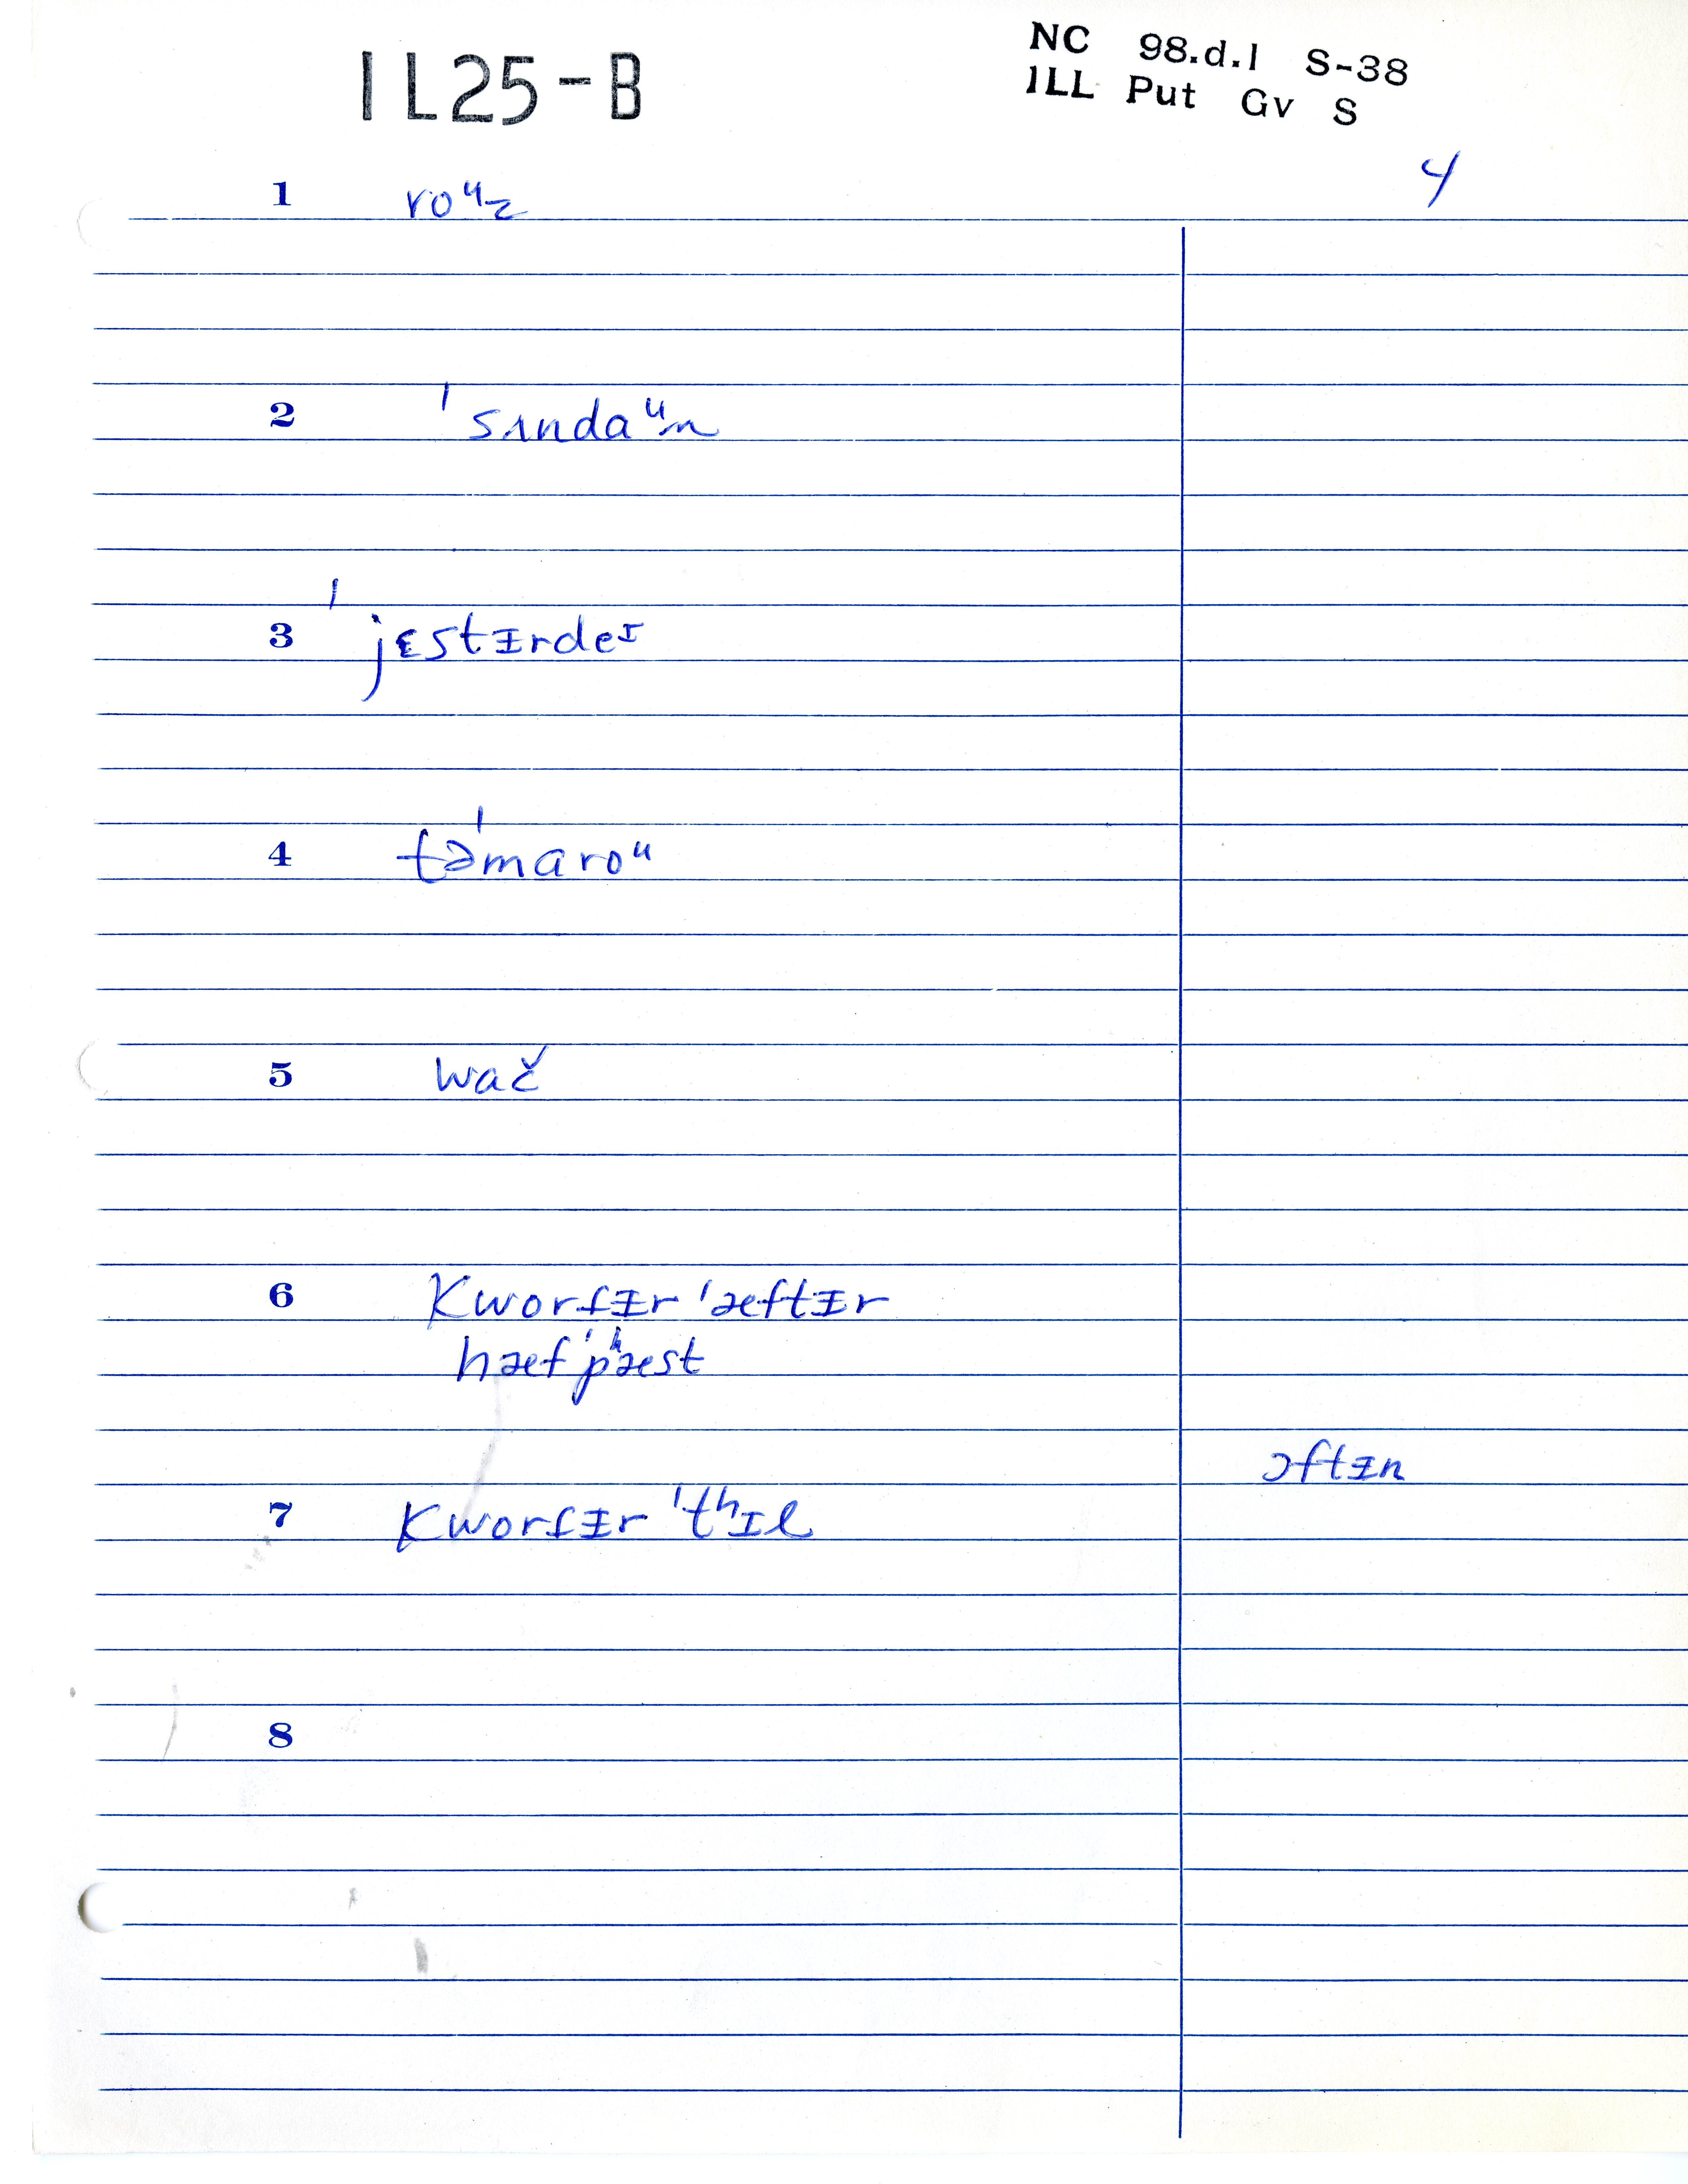 IL25-B
NC 98.d.1 S-38
ILL Put Gv S
4
1 roᵘz
2 ˈsʌndaᵘn
3 ˈjɛstɪ̵rdeᴵ
4 təˈmaroᵘ
5 wač
6 Kworfɪ̵r ˈæftɪ̵r
hæf ˈpʰæst
ɔftɪ̵n
7 Kworfɪ̵r ˈtʰɪl
8